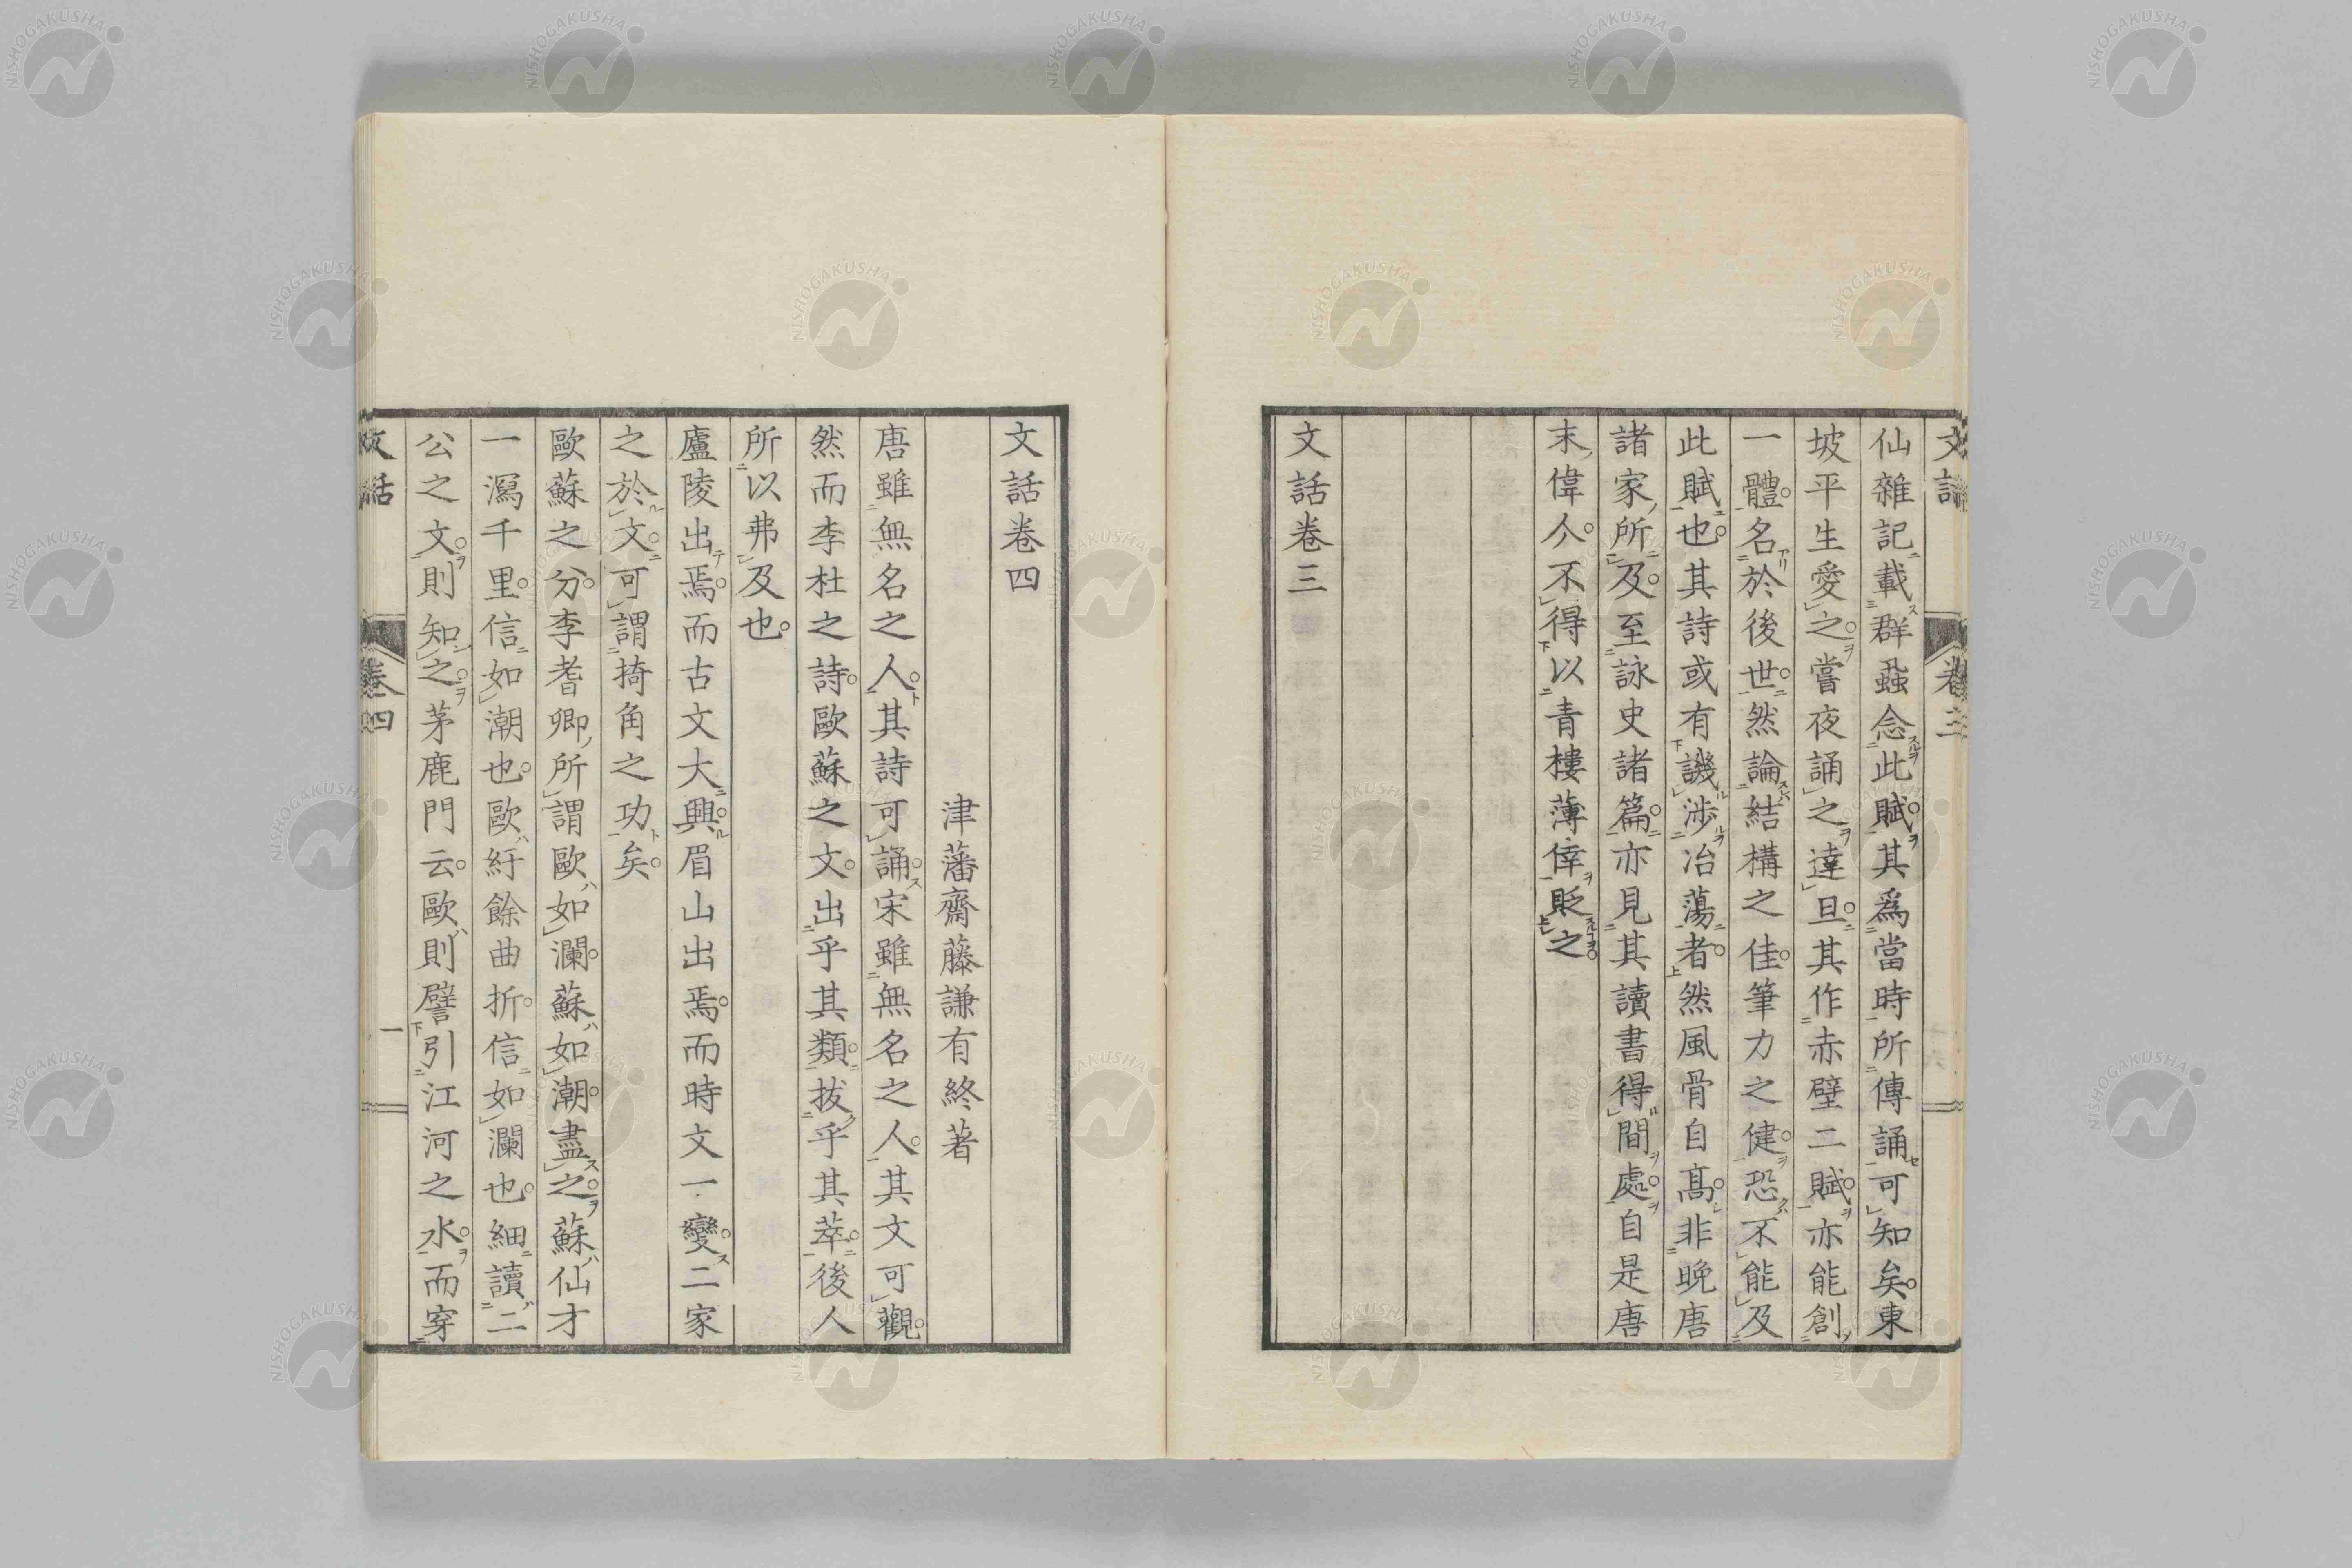 仙雜記載群蝨念此賦其爲當時所傳誦可知矣東
坡平生愛之嘗夜誦之達旦其作赤壁二賦亦能創
一體名於後世然論結構之佳筆力之健恐不能及
此賦也其詩或有譏涉冶蕩者然風骨自高非晚唐
諸家所及至詠史諸篇亦見其讀書得間處自是唐
末偉人不得以青樓薄倖貶之
文話卷三
文話卷四
津藩齋藤謙有終著
唐雖無名之人其詩可誦宋雖無名之人其文可觀
然而李杜之詩歐蘇之文出乎其類拔乎其萃後人
所以弗及也
廬陵出焉而古文大興眉山出焉而時文一變二家
之於文可謂掎角之功矣
歐蘇之分李耆卿所謂歐如瀾蘇如潮盡之蘇仙才
一瀉千里信如潮也歐紆餘曲折信如瀾也細讀二
公之文則知之茅鹿門云歐則譬引江河之水而穿
文話 卷四 一